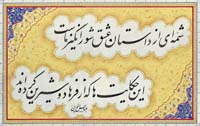 شمه‌ای از داستان عشق شورانگیز ماست
این حکایت‌ها که از فرهاد و شیرین کرده‌اند